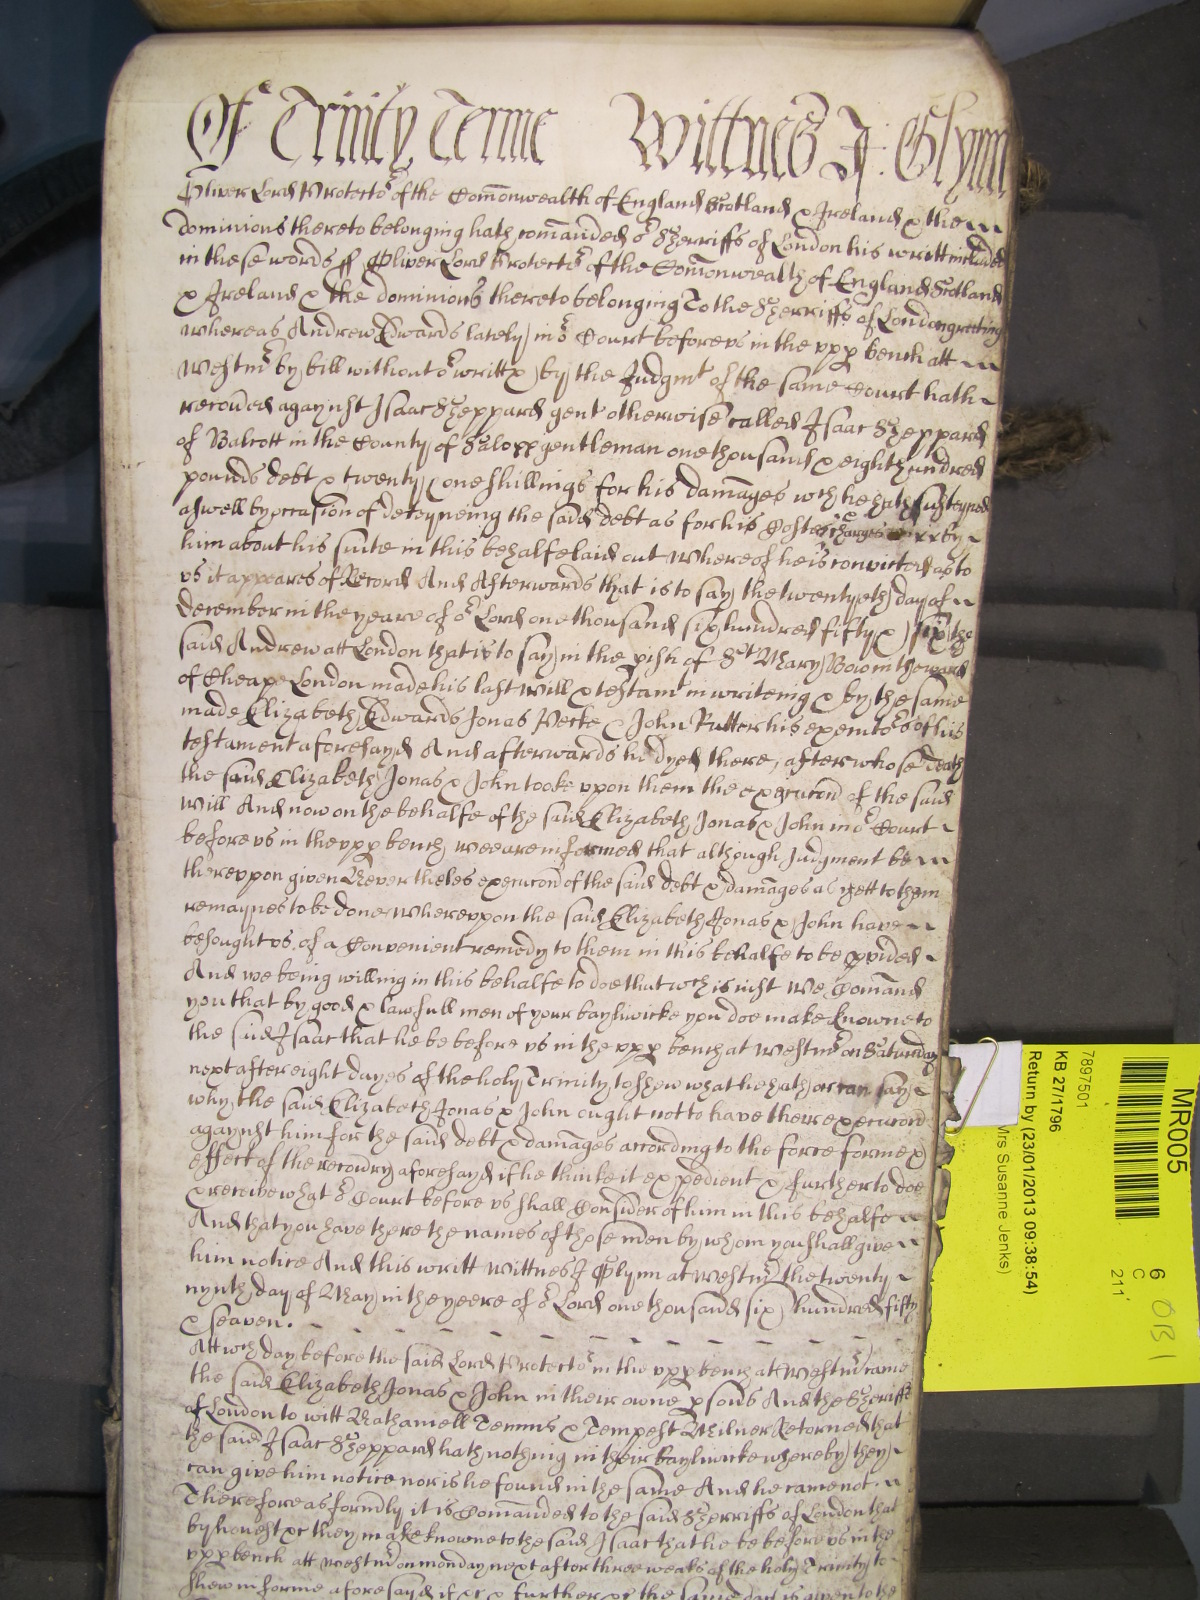 Of Trinity Terme Wittnes J: Glynn
Oliver Lord Protector of the Com̄onwealth of England Scotland & Ireland & the
dominions thereto belonging hath com̄anded or Sherriffs of London his writt included
in these words ss Oliver Lord Protector of the Com̄onwealth of England Scotland
& Ireland & the dominions thereto belonging To the Sherriffs of London greeting
whereas Andrew Edwards lately in or Court before us in the upp bench att
Westmr by bill without or writt & by the Judgmt of the same Court hath
recovered agaynst Isaac Sheppard gent otherwise called Isaac Sheppard
of Balcott in the County of Salopp gentleman one thousand & eight hundred
pounds debt & twenty & one shillings for his damāges wch he hath susteyned
aswell by occasion of deteyneing the said debt as for his Costes & charges by
him about his suite in this behalfe laid out whereof he is convicted as to
us it appeares of Record And Afterwards that is to say the twentyeth day of
December in the yeare of or Lord one thousand six hundred fifty & six the
said Andrew att London that is to say in the pish of St Mary Bow in the ward
of Cheape London made his last will & testamt in writeing & by the same
made Elizabeth Edwards Jonas Pecke & John Rutter his executors of his
testament aforesayd And afterwards he dyed there, after whose death
the said Elizabeth Jonas & John tooke uppon them the execucōn of the said
will And now on the behalfe of the said Elizabeth Jonas & John in or Court
before us in the upp bench wee are informed that although Judgment be
thereuppon given Neverthelesse execucōn of the said debt & damāges as yett to them
remaynes to be done whereuppon the said Elizabeth Jonas & John have
besought us of a Convenient remedy to them in this behalfe to be pvided
And we being willing in this behalfe to doe that wch is iust We Com̄and
you that by good & lawfull men of your bayliwicke you doe make knowne to
the said Isaac that he be before us in the upp bench at Westmr on Saturday
next after eight dayes of the holy Trinity to shew what he hath or can say
why the said Elizabeth Jonas & John ought not to have their execucōn
agaynst him for the said debt & damāges according to the force forme &
effect of the recovery aforesayd if he thinke it expedient & further to doe
& receive what or Court before us shall Consider of him in this behalfe
And that you have there the names of those men by whom you shall give
him notice And this writt wittnes J Glynn at Westmr the twenty
nynth day of May in the yeere of or Lord one thousand six hundred fifty
& seaven.
Att wch day before the said Lord Protector in the upp bench at Westmr came
the said Elizabeth Jonas & John in their owne psons And the Sherriffs
of London to witt Nathaniell Temms & Tempest Milner Retorned that
the said Isaac Sheppard hath nothing in their bayliwicke whereby they
can give him notice nor is he found in the same And he came not.
Therefore as formerly it is Com̄anded to the said Sherriffs of London that
by honest &c they make knowne to the said Isaac that he be before us in the
upp bench att Westmr on monday next after three weekes of the holy Trinity to
shew in forme aforesayd if &c & further &c the same day is given to the
MR005
7897501
KB 27/1796
Return by (23/01/2013 09:38:54)
Mrs Susanne Jenks)
6
C
211